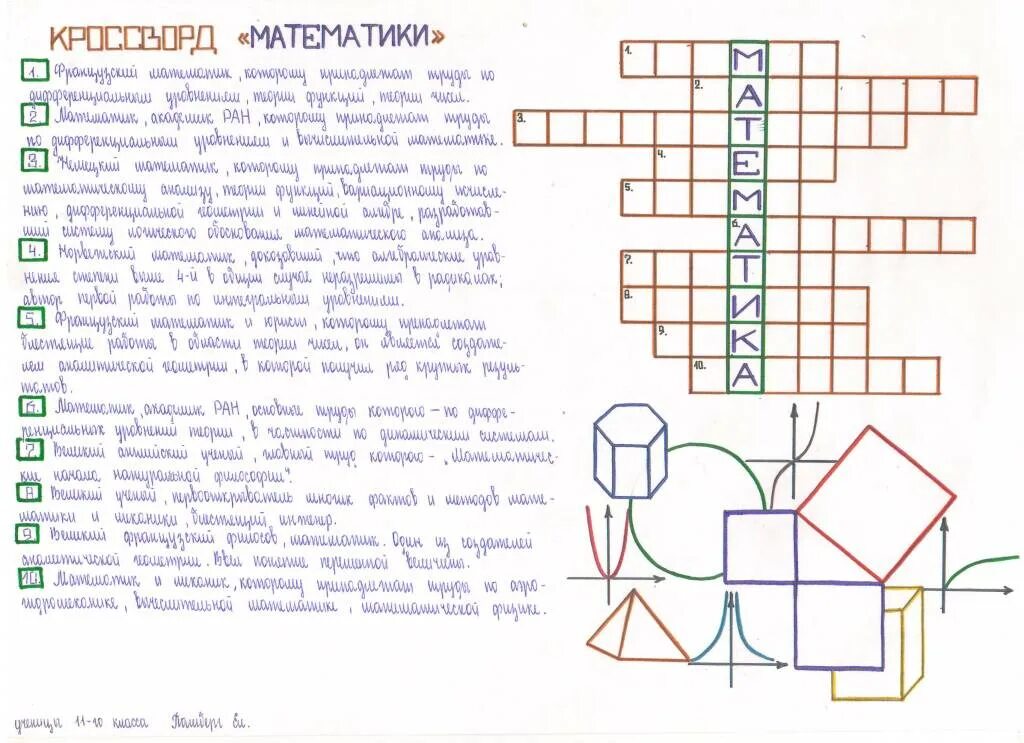 КРОССВОРД «МАТЕМАТИКИ»
1. Французский математик, которому принадлежат труды по
дифференциальным уравнениям, теории функций, теории чисел.
2 Математик, академик РАН, которому принадлежат труды
по дифференциальным уравнением и вычислительной математике.
3. Немецкий математик, которому принадлежат труды по
математическому анализу, теории функций, вариационному исчисле-
нию, дифференциальной геометрии и линейной алгебре, разработав-
ший систему логического обоснования математического анализа.
4. Норвежский математик, доказавший, что алгебраические урав-
нения степени выше 4-й в общем случае неразрешимы в радикалах;
автор первой работы по интегральным уравнениям.
5. Французский математик и юрист, которому принадлежат
блестящие работы в области теории чисел, он является создате-
лем аналитической геометрии, в которой получил ряд крупных резуль-
татов.
6. Математик, академик РАН, основные труды которого – по диффе-
ренциальных уравнений теории, в частности по динамическим системам.
7. Великий английский ученый, главный труд которого – „Математичес-
кие начала натуральной философии".
8 Великий ученый, первооткрыватель многих фактов и методов мате-
матики и механики, блестящий инженер.
9. Великий французский философ, математик. Один из создателей
аналитической геометрии. Ввел понятие переменной величины.
10. Математик и механик, которому принадлежат труды по аэро-
гидромеханике, вычислительной математике, математической физике.
ученицы 11-го класса Ел.
1. М
2. А
3. Т
4. Е
5. М
6. А
7. Т
8. И
9. К
10. А